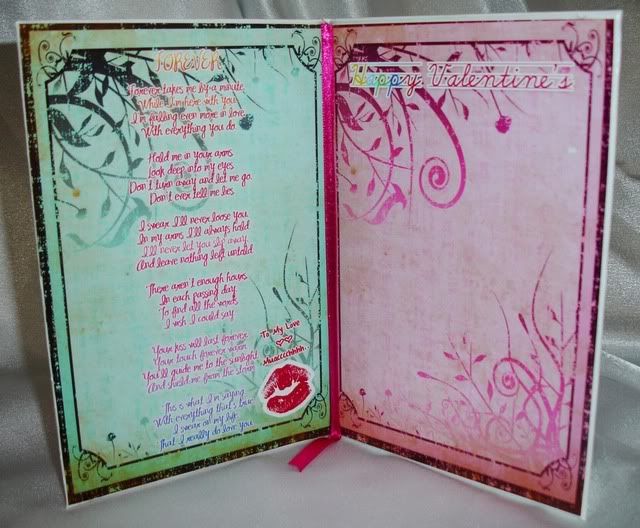 FOREVER
Forever takes me by a minute
While I'm here with you
I'm falling even more in love
With everything you do
Hold me in your arms
Look deep into my eyes
Don't turn away and let me go
Don't ever tell me lies
I swear I'll never loose you
In my arms I'll always hold
I'll never let you slip away
And leave nothing left untold
There aren't enough hours
In each passing day
To find all the words
I wish I could say
Your kiss will last forever
Your touch forever warm
You'll guide me to the sunlight
And shield me from the storm
This is what I'm saying
With everything that's true
I swear on my life
That I really do love you
To My Love
Muacccchhhhh
Happy Valentine's